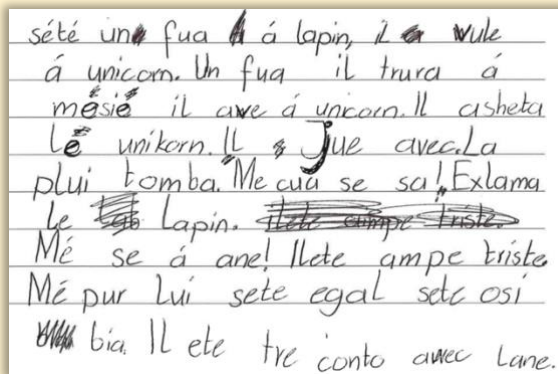 sété un fua á lapin, il vule
á unicorn. Un fua il trura á
mésié il awe á unicorn. Il asheta
Lé unikorn. Il Jue avec. La
plui tomba. "Me cua se sa!" Exlama
le Lapin.
Mé se á ane! Ilete ampe triste.
Mé pur Lui sete egal sete osi
bia. Il ete tre conto awec Lane.